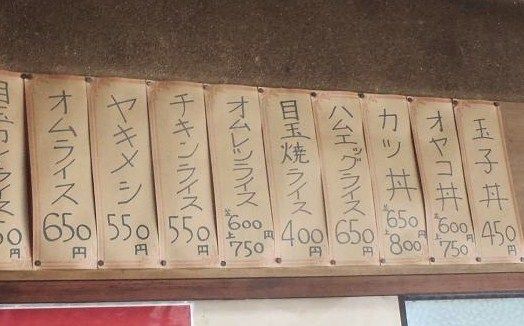 玉子丼
450円
オヤコ丼
並600円
上750
カツ丼
並650円
上800
ハムエッグライス
650円
目玉焼ライス
400円
オムレツライス
並600円
上750
チキンライス
550円
ヤキメシ
550円
オムライス
650円
ライス
50円